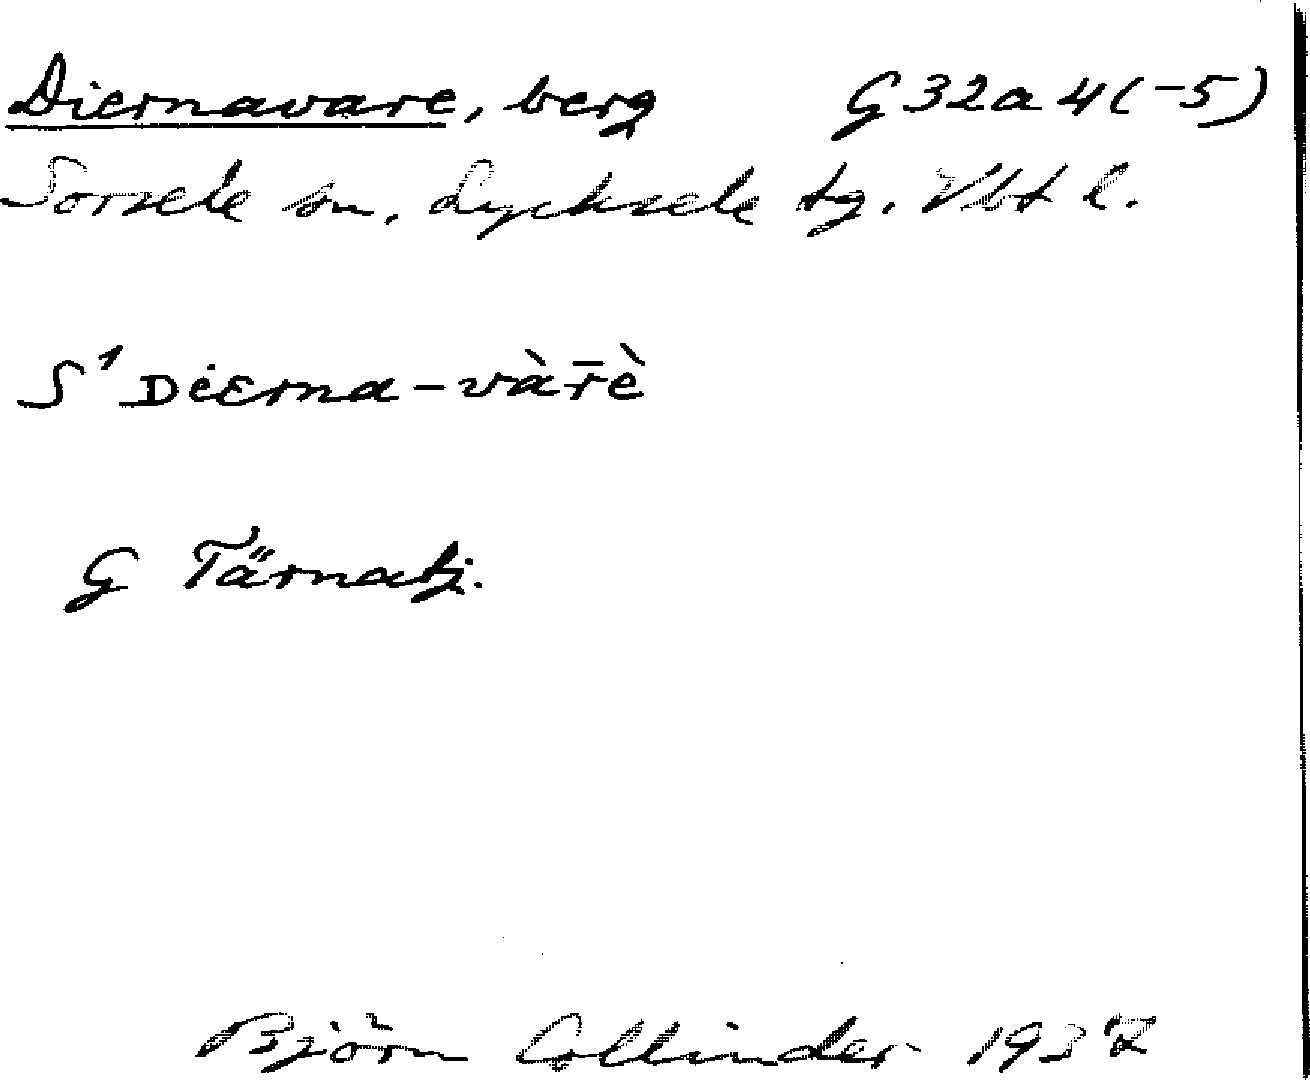 Diernavare, berg G 32 a 4 (-5)
Sorsele sn. Lycksele tg. Vbt l.
S¹ Dėɛrna-và̄r̄è
G Tärnatj.
Björn Collinder 1937